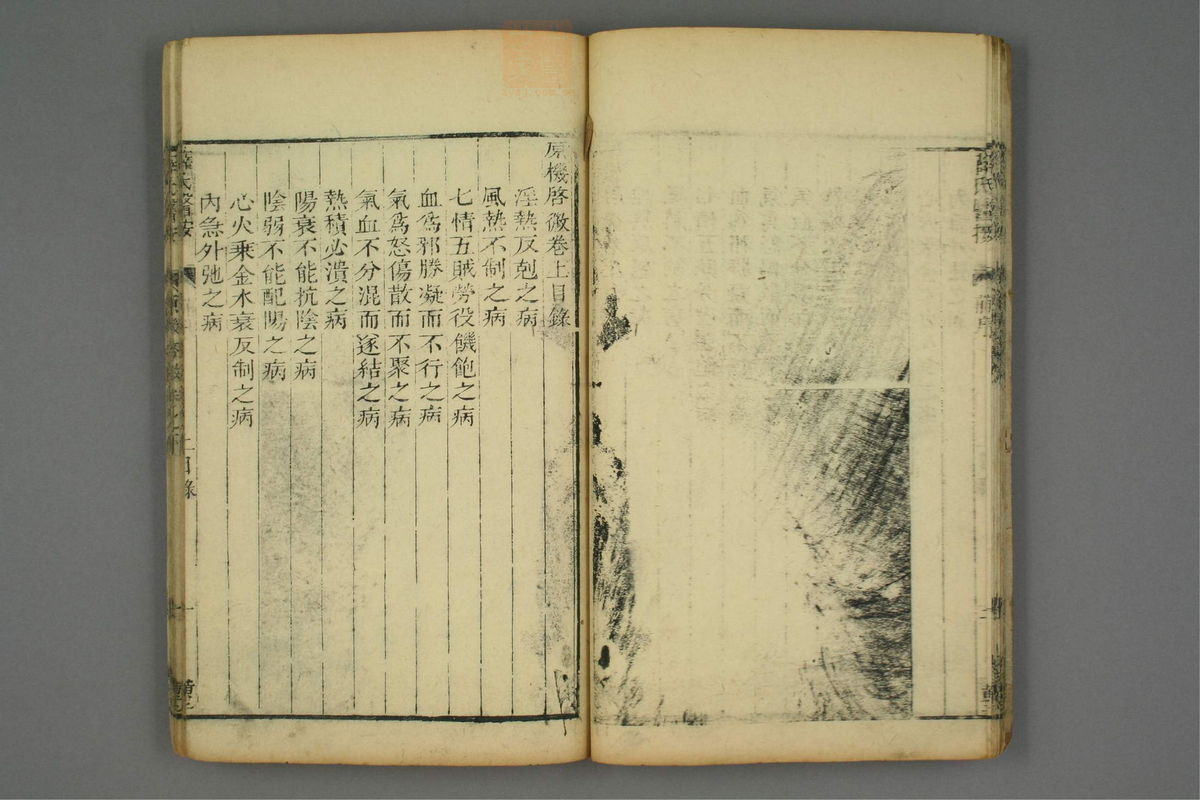 原機啓微卷上目錄
淫熱反剋之病
風熱不制之病
七情五賊勞役饑飽之病
血爲邪勝凝而不行之病
氣爲怒傷散而不聚之病
氣血不分混而遂結之病
熱積必潰之病
陽衰不能抗陰之病
陰弱不能配陽之病
心火乘金水衰反制之病
內急外弛之病
薛氏醫按
上目錄